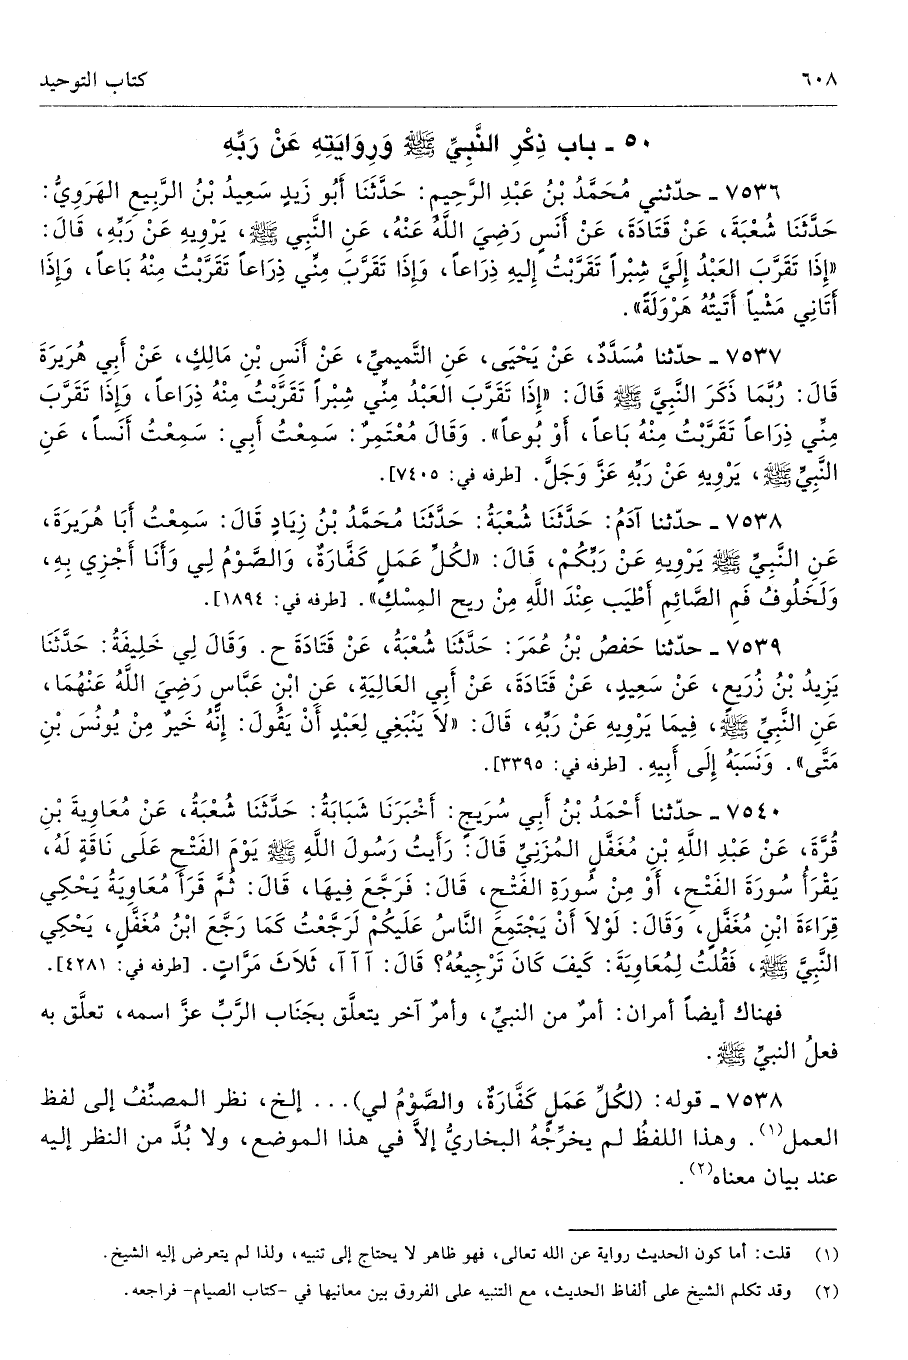 ٦٠٨
كتاب التوحيد
٥٠ ـ باب ذِكْرِ النَّبِيِّ ﷺ وَرِوَايَتِهِ عَنْ رَبِّهِ
٧٥٣٦ ـ حدّثني مُحَمَّدُ بْنُ عَبْدِ الرَّحِيمِ: حَدَّثَنَا أَبُو زَيدٍ سَعِيدُ بْنُ الرَّبِيعِ الهَرَوِيُّ:
حَدَّثَنَا شُعْبَةَ، عَنْ قَتَادَةَ، عَنْ أَنَسٍ رَضِيَ اللَّهُ عَنْهُ، عَنِ النَّبِي ﷺ، يَرْوِيهِ عَنْ رَبِّهِ، قَالَ:
«إِذَا تَقَرَّبَ العَبْدُ إِلَيَّ شِبْراً تَقَرَّبْتُ إِليهِ ذِرَاعاً، وَإِذَا تَقَرَّبَ مِنِّي ذِرَاعاً تَقَرَّبْتُ مِنْهُ بَاعاً، وَإِذَا
أَتَانِي مَشْياً أَتَيتُهُ هَرْوَلَةً».
٧٥٣٧ ـ حدّثنا مُسَدَّدٌ، عَنْ يَحْيَى، عَنِ التَّمِيميِّ، عَنْ أَنَسِ بْنِ مَالِكٍ، عَنْ أَبِي هُرَيرَةَ
قَالَ: رُبَّمَا ذَكَرَ النَّبِيَّ ﷺ قَالَ: «إِذَا تَقَرَّبَ العَبْدُ مِنِّي شِبْراً تَقَرَّبْتُ مِنْهُ ذِرَاعاً، وَإِذَا تَقَرَّبَ
مِنِّي ذِرَاعاً تَقَرَّبْتُ مِنْهُ بَاعاً، أَوْ بُوعاً». وَقَالَ مُعْتَمِرٌ: سَمِعْتُ أَبِي: سَمِعْتُ أَنَساً، عَنِ
النَّبِيِّ ﷺ، يَرْوِيهِ عَنْ رَبِّهِ عَزَّ وَجَلَّ. [طرفه في: ٧٤٠٥].
٧٥٣٨ ـ حدّثنا آدَمُ: حَدَّثَنَا شُعْبَةُ: حَدَّثَنَا مُحَمَّدُ بْنُ زِيَادٍ قَالَ: سَمِعْتُ أَبَا هُرَيرَةَ،
عَنِ النَّبِيِّ ﷺ يَرْوِيهِ عَنْ رَبِّكُمْ، قَالَ: «لكُلِّ عَمَلٍ كَفَّارَةٌ، وَالصَّوْمُ لِي وَأَنَا أَجْزِي بِهِ،
وَلَخَلُوفُ فَمِ الصَّائِمِ أَطْيَب عِنْدَ اللَّهِ مِنْ رِيحِ المِسْكِ». [طرفه في: ١٨٩٤].
٧٥٣٩ ـ حدّثنا حَفصُ بْنُ عُمَرَ: حَدَّثَنَا شُعْبَةُ، عَنْ قَتَادَةَ ح. وَقَالَ لِي خَلِيفَةُ: حَدَّثَنَا
يَزِيدُ بْنُ زُرَيعٍ، عَنْ سَعِيدٍ، عَنْ قَتَادَةَ، عَنْ أَبِي العَالِيَةِ، عَنِ ابْنِ عَبَّاسٍ رَضِيَ اللَّهُ عَنْهُمَا،
عَنِ النَّبِيِّ ﷺ، فِيمَا يَرْوِيهِ عَنْ رَبِّهِ، قَالَ: «لاَ يَنْبَغِي لِعَبْدٍ أَنْ يَقُولَ: إِنَّهُ خَيرٌ مِنْ يُونُسَ بْنِ
مَتَّى». وَنَسَبَهُ إِلَى أَبِيهِ. [طرفه في: ٣٣٩٥].
٧٥٤٠ ـ حدّثنا أَحْمَدُ بْنُ أَبِي سُرَيجٍ: أَخْبَرَنَا شَبَابَةُ: حَدَّثَنَا شُعْبَةُ، عَنْ مُعَاوِيةَ بْنِ
قُرَّةَ، عَنْ عَبْدِ اللَّهِ بْنِ مُغَفَّلٍ المُزَنِيِّ قَالَ: رَأَيتُ رَسُولَ اللَّهِ ﷺ يَوْمَ الفَتْحِ عَلَى نَاقَةٍ لَهُ،
يَقْرَأُ سُورَةَ الفَتْحِ، أَوْ مِنْ سُورَةِ الفَتْحِ، قَالَ: فَرَجَّعَ فِيهَا، قَالَ: ثُمَّ قَرَأَ مُعَاوِيَةُ يَحْكِي
قِرَاءَةَ ابْنِ مُغَفَّلٍ، وَقَالَ: لَوْلاَ أَنْ يَجْتَمِعَ النَّاسُ عَلَيكُمْ لَرَجَّعْتُ كمَا رَجَّعَ ابْنُ مُغَفَّلٍ، يَحْكِي
النَّبِيَّ ﷺ، فَقُلتُ لِمُعَاوِيَةَ: كَيفَ كَانَ تَرْجِيعُهُ؟ قَالَ: آآآ، ثَلاَثَ مَرَّاتٍ. [طرفه في: ٤٢٨١].
فهناك أيضاً أمران: أمرٌ من النبيِّ، وأمرٌ آخر يتعلَّق بجَنَاب الرَّبِّ عزَّ اسمه، تعلَّق به
فعلُ النبيِّ ﷺ.
٧٥٣٨ ـ قوله: (لكُلِّ عَمَلٍ كَفَّارَةٌ، والصَّوْمُ لي)... إلخ، نظر المصنِّفُ إلى لفظ
العمل(١). وهذا اللفظُ لم يخرِّجْهُ البخاريُّ إلاَّ في هذا الموضع، ولا بُدَّ من النظر إليه
عند بيان معناه(٢).
(١) قلت: أما كون الحديث رواية عن الله تعالى، فهو ظاهر لا يحتاج إلى تنبيه، ولذا لم يتعرض إليه الشيخ.
(٢) وقد تكلم الشيخ على ألفاظ الحديث، مع التنبيه على الفروق بين معانيها في -كتاب الصيام- فراجعه.